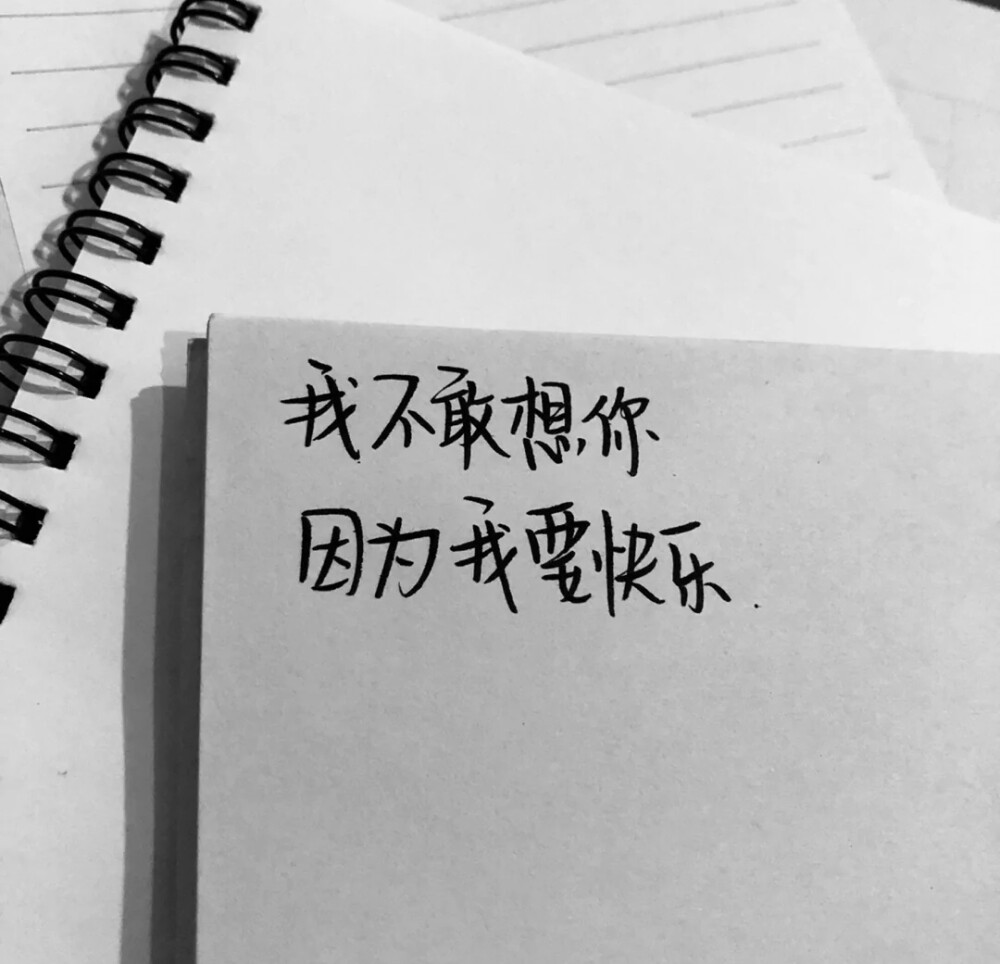 我不敢想你
因为我要快乐.